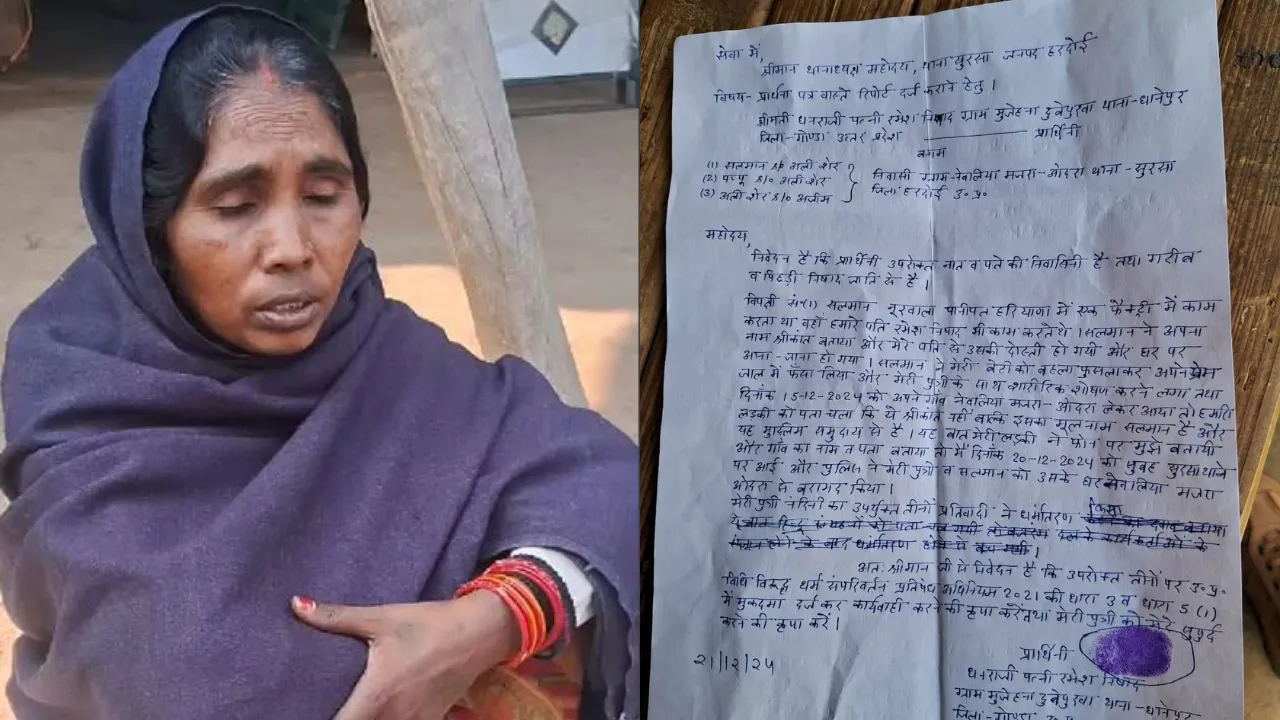 सेवा में,
श्रीमान थानाध्यक्ष महोदय, थाना सुरसा जनपद हरदोई
विषय- प्रार्थना पत्र वास्ते रिपोर्ट दर्ज कराने हेतु ।
श्रीमती धनराजी पत्नी रमेश निषाद ग्राम मुजेहना दुबेपुरवा थाना-धानेपुर
जिला-गोण्डा उत्तर प्रदेश ——— प्रार्थिनी
बनाम
(1) सलमान s/o अली शेर
(2) पप्पू s/o अली शेर
(3) अली शेर s/o अजीम
निवासी ग्राम नेवलिया मजरा-ओदरा थाना-सुरसा
जिला हरदोई उ०प्र०
महोदय,
निवेदन है कि प्रार्थिनी उपरोक्त नाम व पते की निवासिनी है तथा गरीब
व पिछड़ी निषाद जाति से है ।
विपक्षी सं०(1) सलमान नूरवाला पानीपत हरियाणा में एक फैक्ट्री में काम
करता था वहीं हमारे पति रमेश निषाद भी काम करते थे । सलमान ने अपना
नाम श्रीकांत बताया और मेरे पति से उसकी दोस्ती हो गयी और घर पर
आना-जाना हो गया । सलमान ने मेरी बेटी को बहला फुसलाकर अपने प्रेम
जाल में फँसा लिया और मेरी पुत्री के साथ शारीरिक शोषण करने लगा तथा
दिनांक 15-12-2024 को अपने गाँव नेवलिया मजरा-ओदरा लेकर आया तो हमारी
लड़की को पता चला कि ये श्रीकांत नहीं बल्कि इसका मूलनाम सलमान है और
यह मुस्लिम समुदाय से है । यह बात मेरी लड़की ने फोन पर मुझे बतायी
और गाँव का नाम व पता बताया तो मैं दिनांक 20-12-2024 को सुबह सुरसा थाने
पर आई और पुलिस ने मेरी पुत्री व सलमान को उसके घर नेवलिया मजरा
ओदरा से बरामद किया ।
मेरी पुत्री नंदिनी का उपर्युक्त तीनों प्रतिवादी ने धर्मांतरण किया
अतः श्रीमान जी से निवेदन है कि उपरोक्त तीनों पर उ०प्र०
विधि विरुद्ध धर्म संपरिवर्तन प्रतिषेध अधिनियम 2021 की धारा 3 व धारा 5 (1)
में मुकदमा दर्ज कर कार्यवाही करने की कृपा करें तथा मेरी पुत्री को मेरे सुपुर्द
करने की कृपा करें ।
प्रार्थिनी
21/12/24
धनराजी पत्नी रमेश निषाद
ग्राम मुजेहना दुबेपुरवा थाना-धानेपुर
जिला-गोण्डा उ०प्र०